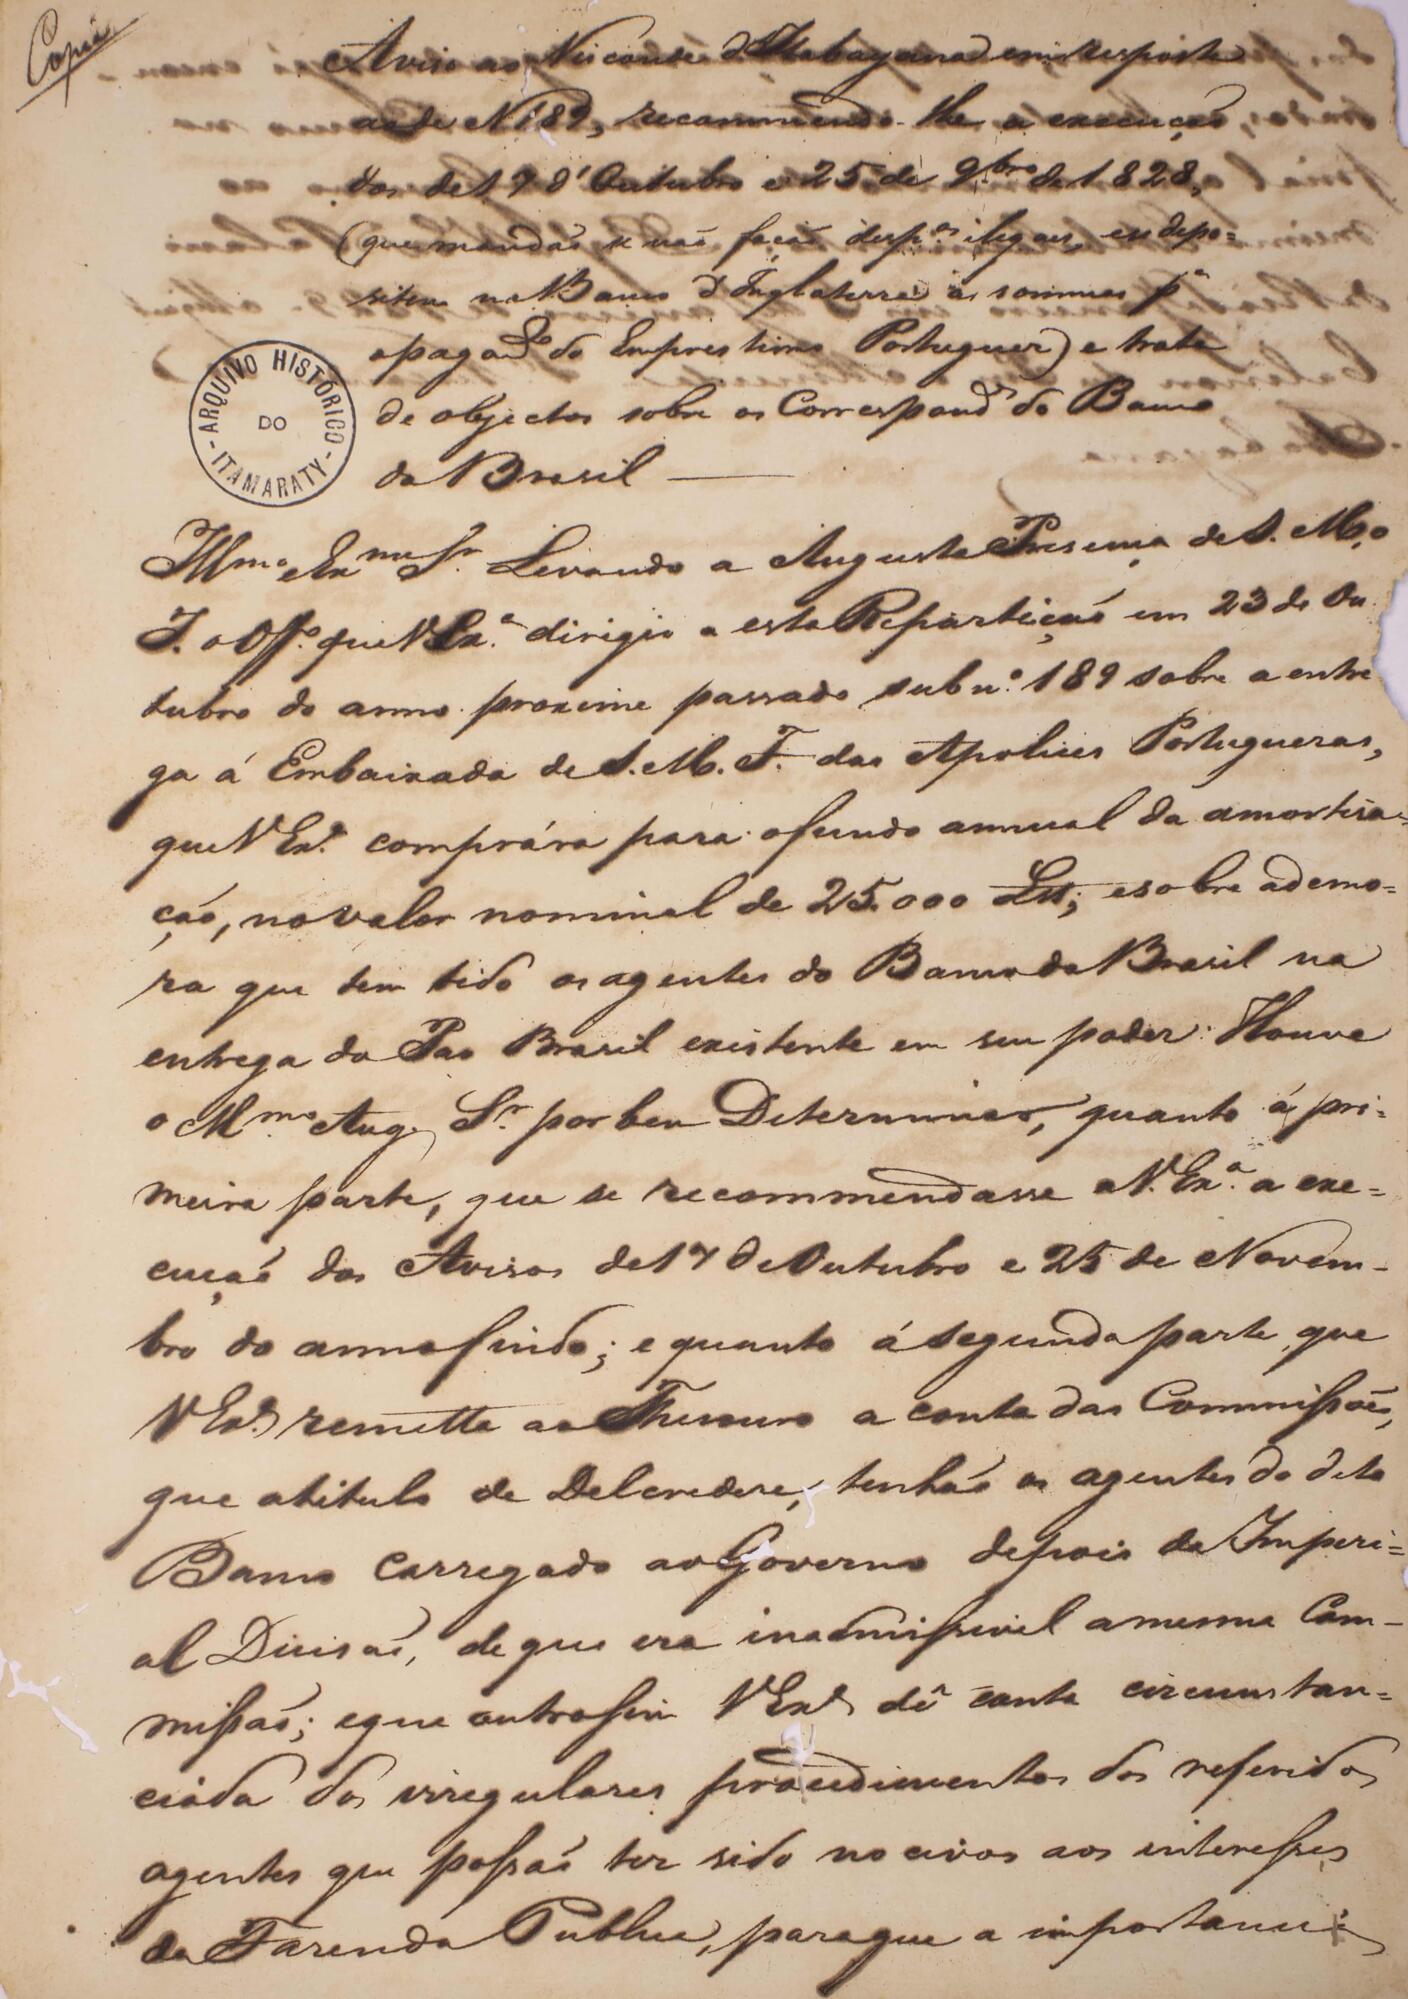 Copia
Aviso ao Visconde d'Itabayana em resposta
ao de N 189, recommendo-lhe a execução
dos de 17 d'Outubro e 25 de 9bro de 1828,
(que mandão se não fação desp.as illegaes, e se depo=
sitem no Banco d'Inglaterra as sommas p.a
o pagam.to do Emprestimo Portuguez) e trata
de objectos sobre os Correspond.es do Banco
do Brasil
ARQUIVO HISTORICO
DO
ITAMARATY
Illmo e Exmo Sr. Levando a Augusta Presença de S. M. o
I. o Off.o que V Ex.a dirigio a esta Repartição em 23 de Ou
tubro do anno proximo passado sub n.o 189 sobre a entre
ga á Embaixada de S. M. F. das Apolices Portuguezas,
que V Ex.a comprára para o fundo annual da amortisa=
ção, no valor nominal de 25.000 ; e sobre a demo=
ra que tem tido os agentes do Banco do Brasil na
entrega do Pao Brasil existente em seu poder: Houve
o Mmo Aug. Sr. por bem Determinar, quanto á pri=
meira parte, que se recommendasse a V. Ex.a a exe=
cução dos Avisos de 17 de Outubro e 25 de Novem-
bro do anno findo; e quanto á segunda parte, que
V Ex.a remetta ao Thesouro a conta das Commissões,
que a titulo de Delcredere, tenhão os agentes do dito
Banco carregado ao Governo depois da Imperi=
al Decisão, de que era inadmissivel a mesma Com-
missão; e que outrosim V Ex.a dê conta circunstan=
ciada dos irregulares procedimentos dos referidos
agentes que possão ter sido nocivos aos interesses
da Fazenda Publica, para que a importancia